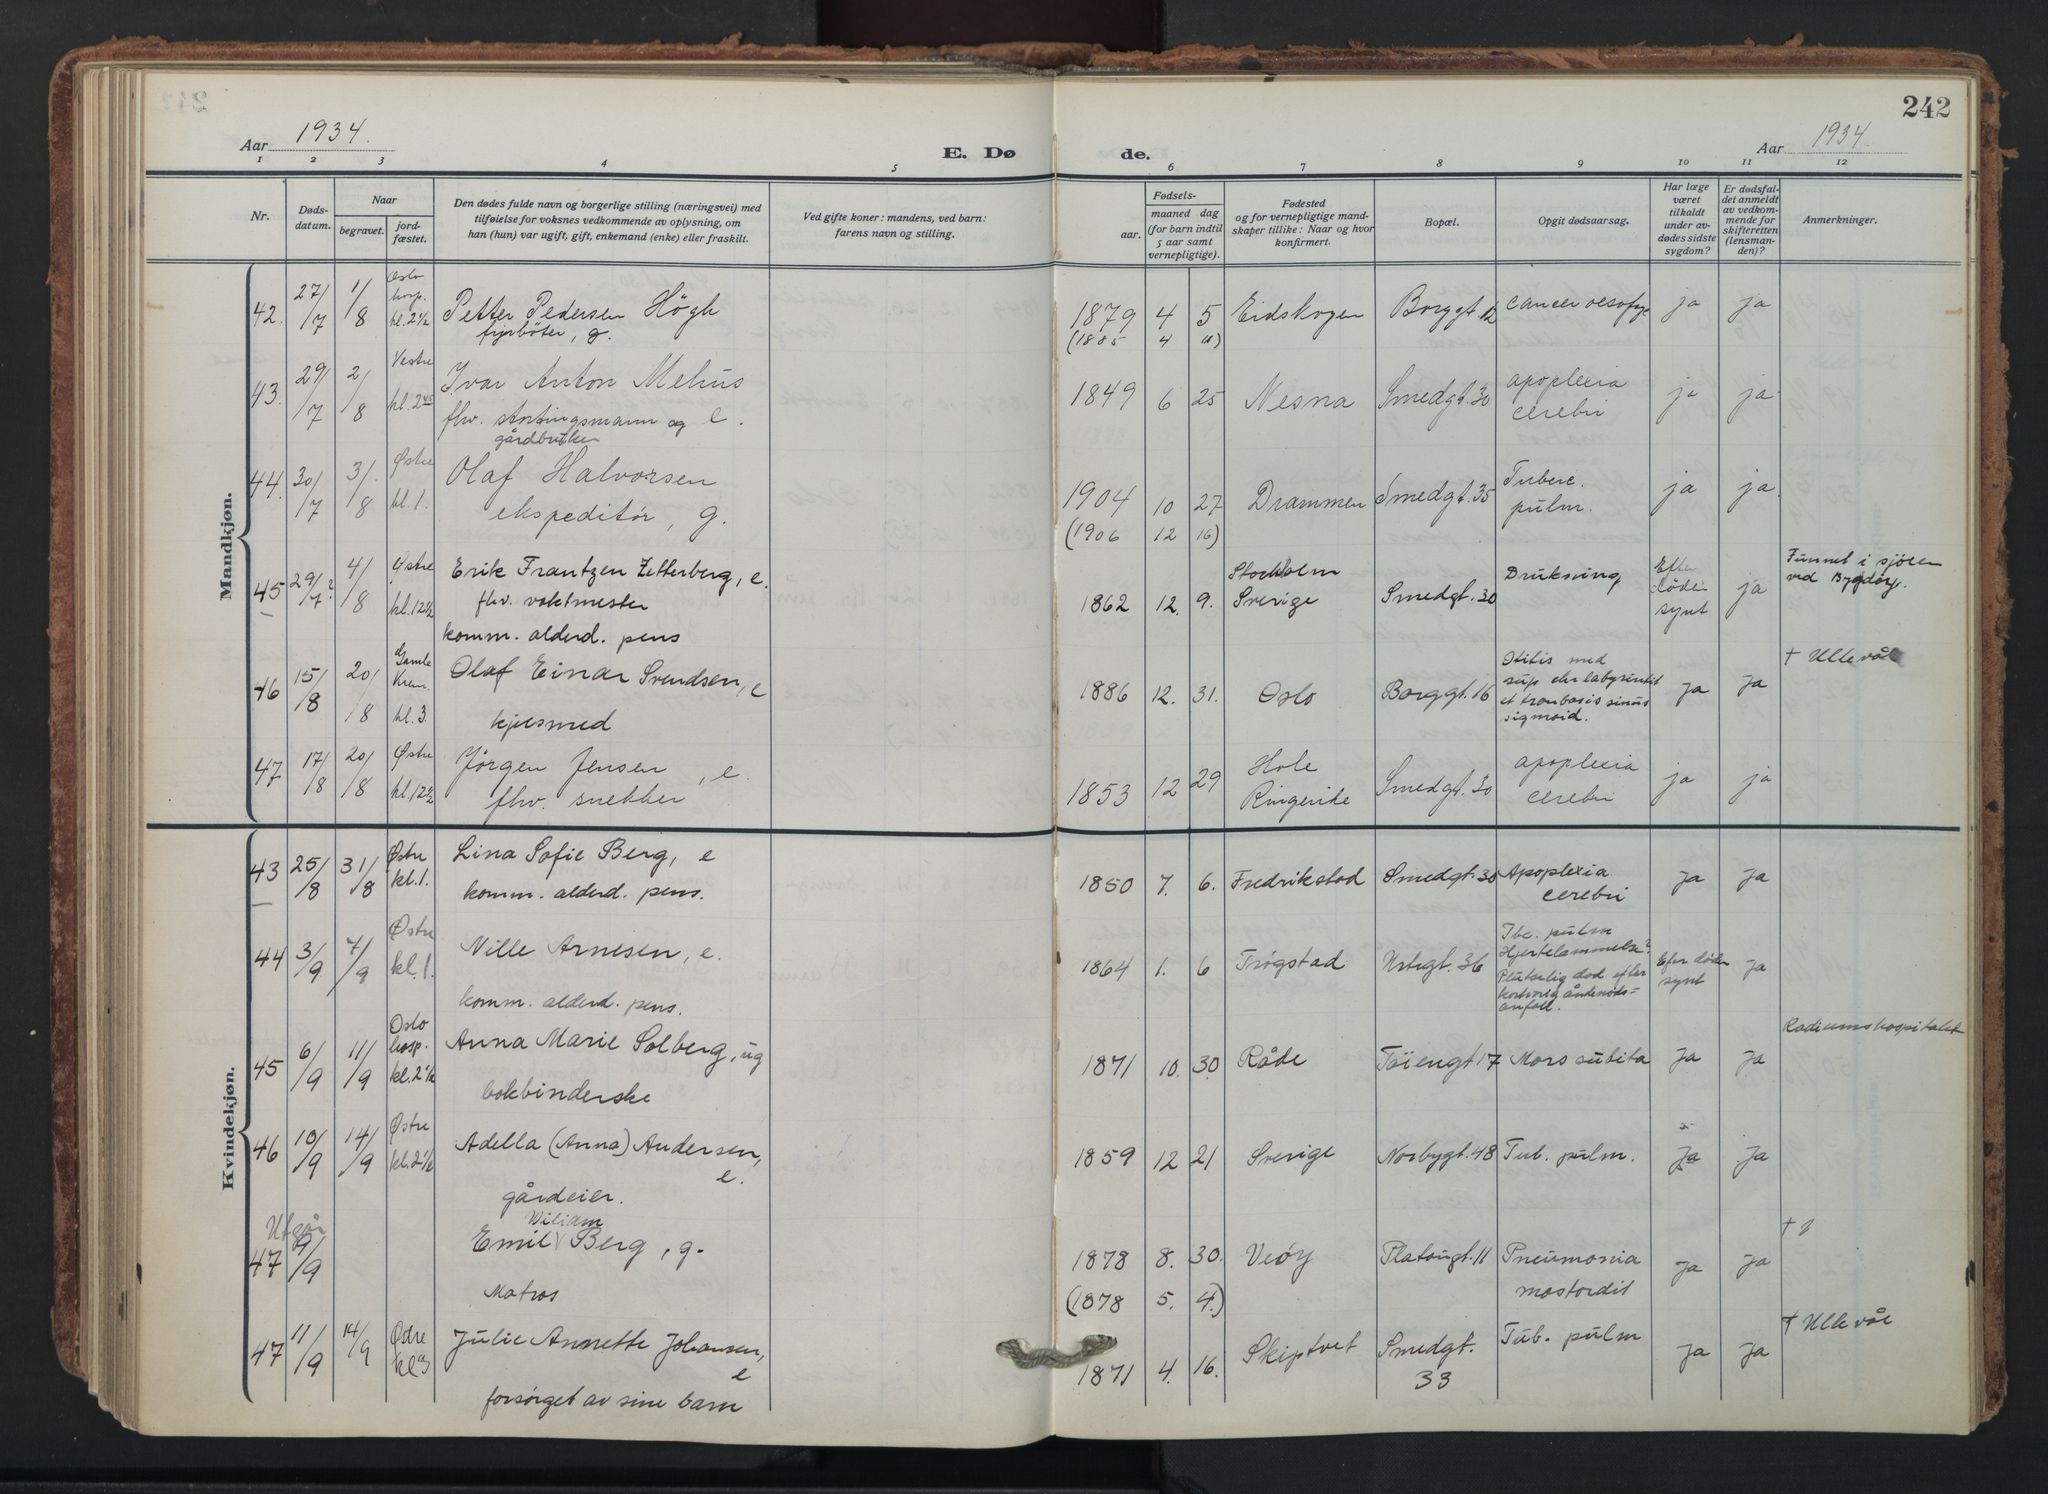 242
Aar 1934.
E. Dø
de.
Aar 1934.
1 2 3 4 5 6 7 8 9 10 11 12
Nr.
Døds-
datum.
Naar
begravet.
jord-
fæstet.
Den dødes fulde navn og borgerlige stilling (næringsvei) med
tilføielse for voksnes vedkommende av oplysning, om
han (hun) var ugift, gift, enkemand (enke) eller fraskilt.
Ved gifte koner: mandens, ved barn:
farens navn og stilling.
Fødsels-
aar.
maaned dag
(for barn indtil
5 aar samt
vernepligtige).
Fødested
og for vernepligtige mand-
skaper tillike: Naar og hvor
konfirmert.
Bopæl.
Opgit dødsaarsag.
Har læge
været
tilkaldt
under av-
dødes sidste
sygdom?
Er dødsfal-
det anmeldt
av vedkom-
mende for
skifteretten
(lensman-
den)?
Anmerkninger.
Mandkjøn.
42. 27/7 1/8 Oslo hosp. kl. 2½ Petter Pedersen Högh 1879 4 5 Eidskogen Borggt. 12 cancer oesofag ja ja
fyrbøter, g. (1885 4 18)
43. 29/7 2/8 Vestre kl. 2 45 Ivar Anton Mehus 1849 6 25 Nesna Smedgt. 30 apoplexia cerebri ja ja
fhv. stortingsmann og e.
gårdbruker
44. 30/7 3/8 Østre kl. 1. Olaf Halvorsen 1904 10 27 Drammen Smedgt. 35 Tuberc. pulm. ja ja
ekspeditör, g. (1906 12 16)
45 29/7? 4/8 Østre kl. 12½ Erik Frantzen Zetterberg, e. 1862 12. 9. Stockholm Sverige Smedgt. 30 Drukning Efter döden synt ja Funnet i sjöen
ved Bygdöy.
fhv. vaktmester
komm. alderd. pens
46 15/8 20/8 Gamle Krem. kl. 3. Olaf Einar Svendsen, e 1886 12. 31. Oslo Borggt. 16 Otitis med
sup chr labyrintit
et trombosis sinus
sigmoid. Ja Ja † Ullevål
kjelsmed
47 17/8 20/8 Østre kl. 12½ Jörgen Jensen, e. 1853 12 29 Hole Ringerike Smedgt. 30 apoplexia cerebri ja ja
fhv. snekker
Kvindekjøn.
43 25/8 31/8 Østre kl. 1. Lina Sofie Berg, e 1850 7. 6. Fredrikstad Smedgt. 30 Apoplexia cerebri Ja Ja
komm. alderd. pens.
44 3/9 7/9 Østre kl. 1. Nille Arnesen, e. 1864 1. 6 Trøgstad Urtegt. 36 Tbc. pulm
Hjertelammelse?
Plutselig død efter
kortvarig åndenöds=
anfall. Efter döden synt Ja
komm. alderd. pens.
45 6/9 11/9 Oslo hosp. kl. 2½ Anna Marie Solberg, ug 1871 10. 30. Råde Töiengt 17 Mors subita Ja Ja Radiumshospitalet
bokbinderske
46 10/9 14/9 Østre kl. 2½ Adella (Anna) Andersen, e. 1859 12 21 Sverige Norbygt. 48 Tub. pulm. Ja Ja
gårdeier.
Utgår
47 9/9 Emil Wiliam Berg, g. 1878 8. 30. Veöy Platougt. 11 Pneumonia mastoidit Ja Ja †
Matros (1878 5. 4.)
47 11/9 14/9 Østre kl 3 Julie Annette Johansen, e 1871 4. 16. Skiptvet Smedgt. 33 Tub. pulm Ja Ja † Ullevål
forsørget av sine barn